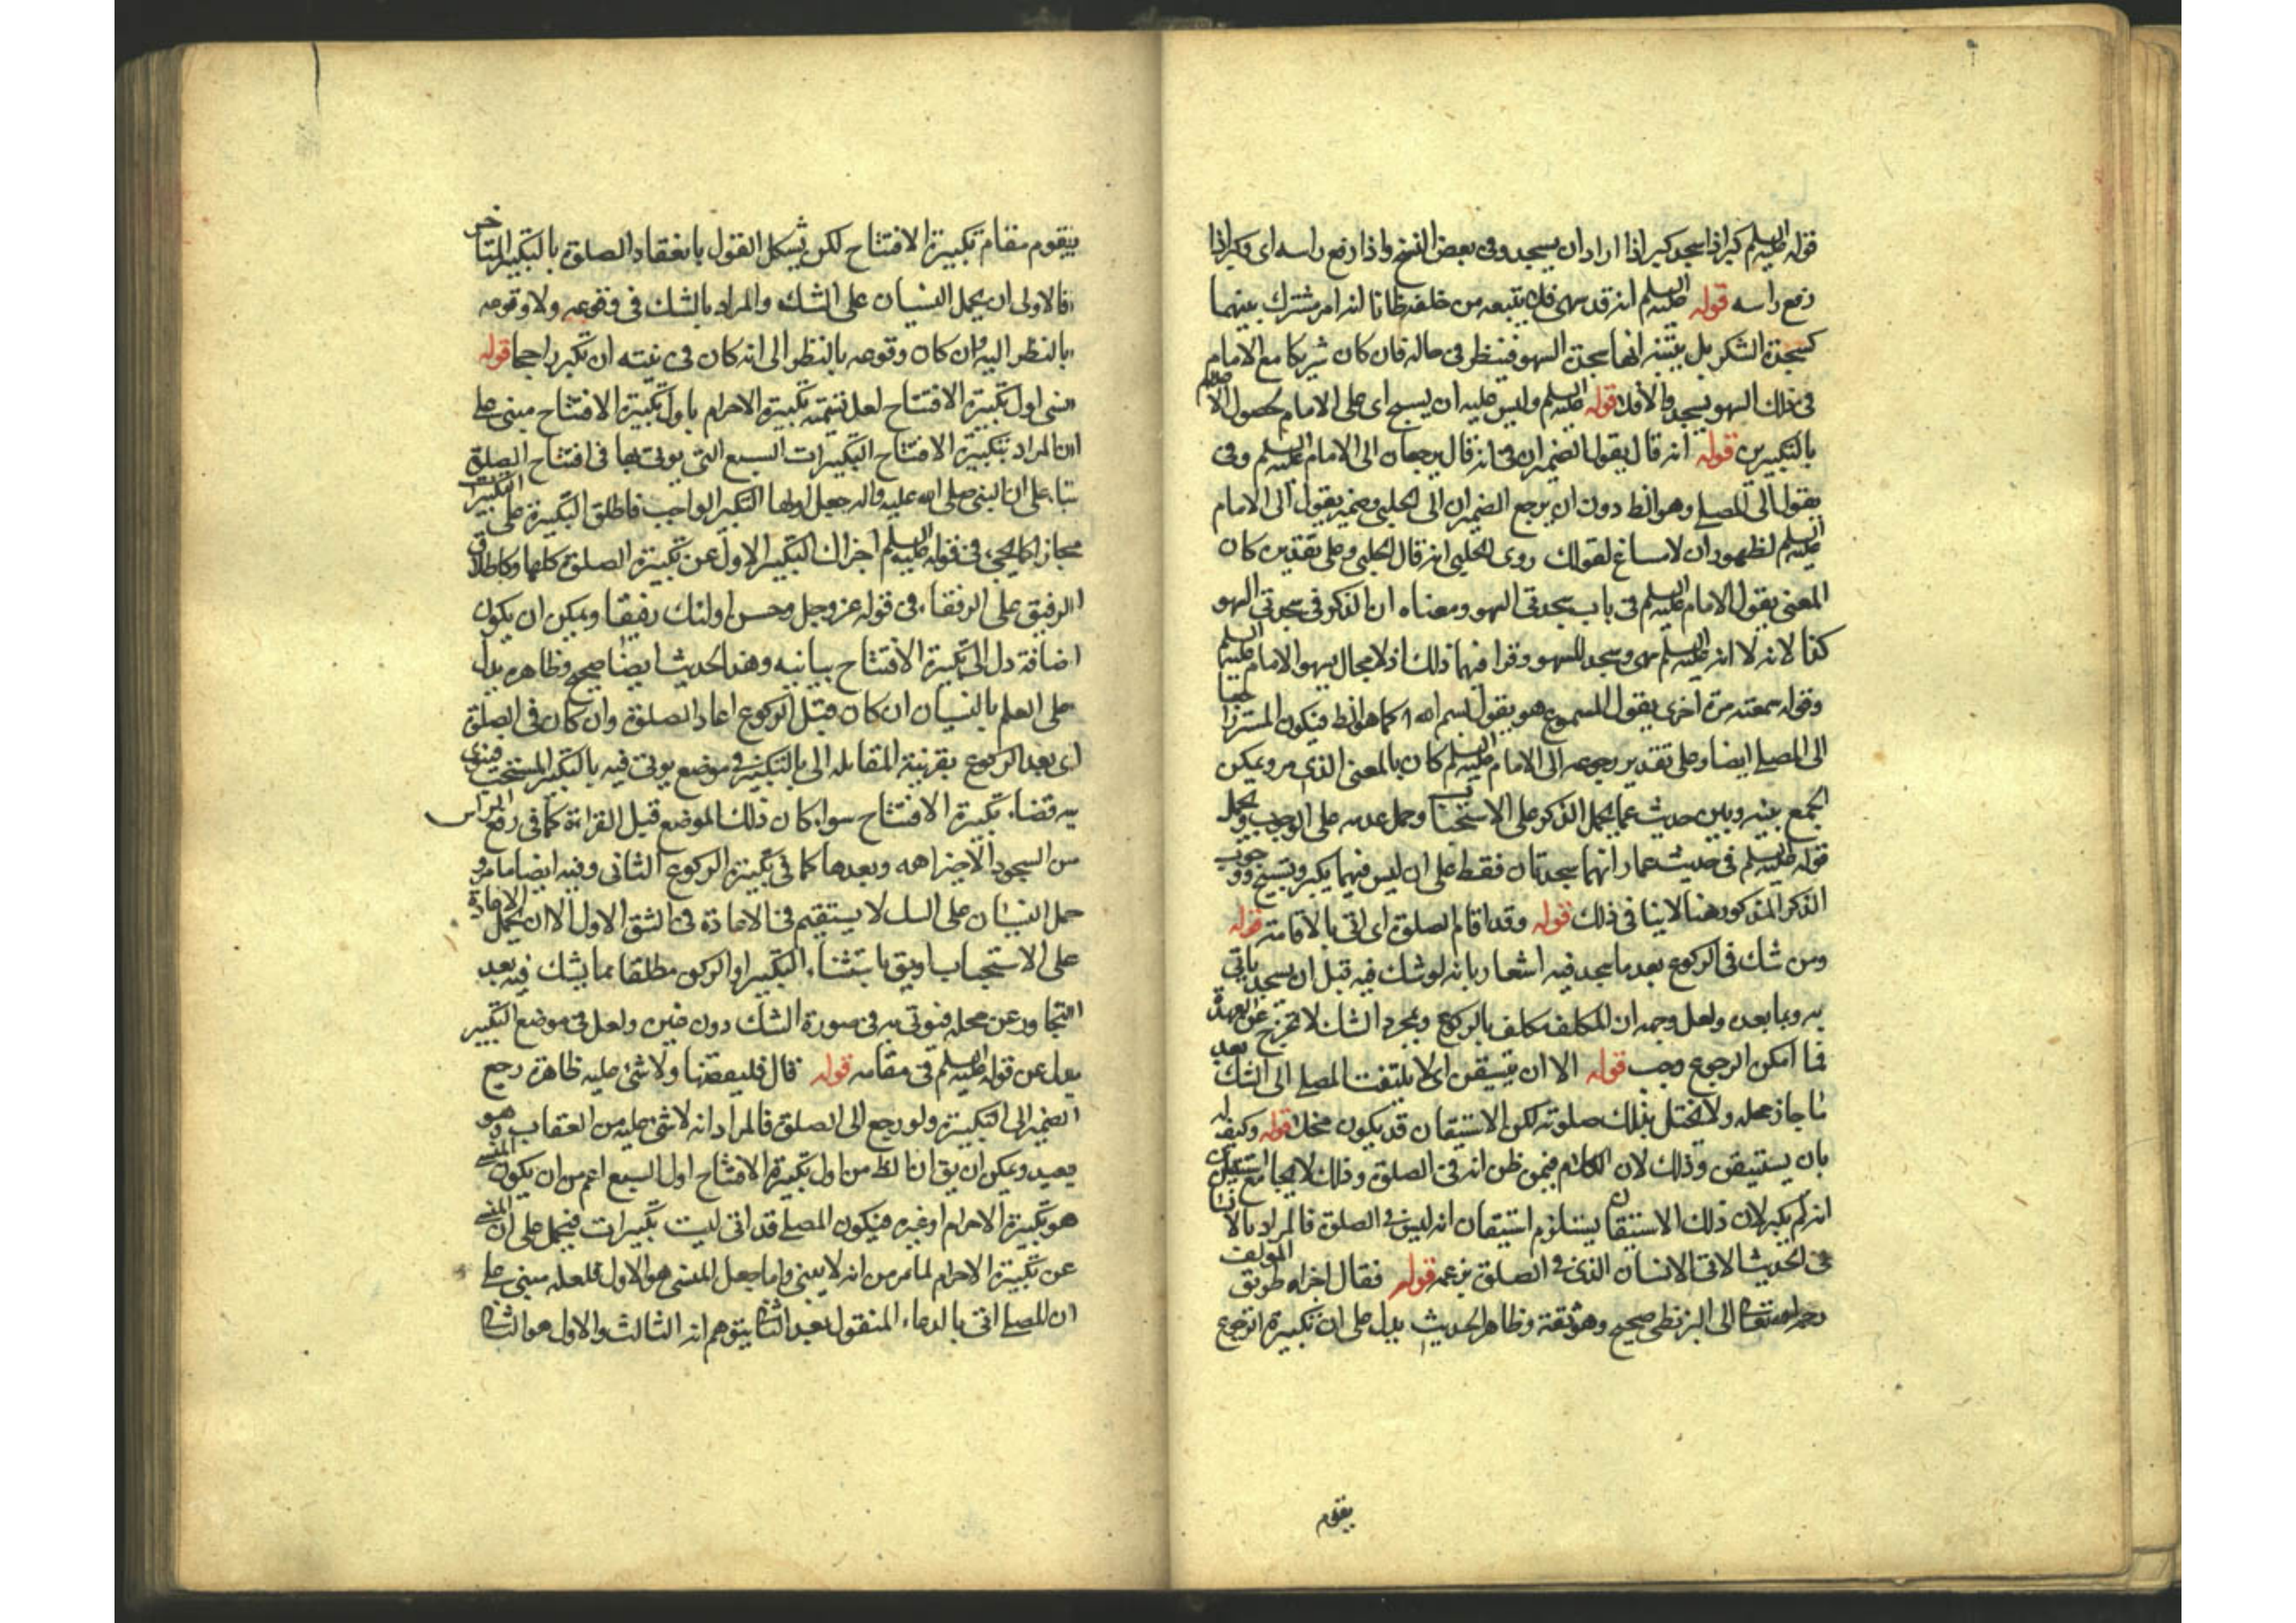 قوله عليه السلم كبر اذا سجد كبر اذا اراد ان يسجد وفى بعض النسخ واذا رفع راسه اى وكبر اذا
رفع راسه قوله عليه السلم انه قد سهى فلا يتبعه من خلفه ظانا انه امر مشترك بينهما
كسجدة الشكر بل يتنبه انها سجدة السهو فينظر فى حاله فان كان شريكا مع الامام
فى ذلك السهو يسجد والا فلا قوله عليه السلم وليس عليه ان يسبح اى على الامام لحصول
بالتكبيرين قوله انه قال يقول الضميران فى انه قال يرجعان الى الامام عليه السلم وفى
يقول الى المصلى وهو الظ دون ان يرجع الضميران الى الحلبى وضمير يقول الى الامام
عليه السلم لظهور ان لا مساغ لقولك روى الحلبى انه قال الحلبى وعلى تقدير كان
المعنى يقول الامام عليه السلم فى باب سجدتى السهو ومعناه ان الذكر فى سجدتى السهو
كذا لانه لا انه عليه السلم سهى وسجد للسهو وقرا فيهما ذلك اذ لا مجال لسهو الامام عليه السلم
وقوله سمعته مرة اخرى يقول المسموع هو يقول بسم الله كما هو الظ فيكون المستتر
الى المصلى ايضا وعلى تقدير رجوعه الى الامام عليه السلم كان بالمعنى الذى مر ويمكن
الجمع بينه وبين حديث عما بحمل الذكر على الاستحباب وحمل عدمه على الوجوب
قوله عليه السلم فى حديث عمار انهما سجدتان فقط على ان ليس فيهما تكبير وتسبيح ووجوب
الذكر المذكور هنا لا ينافى ذلك قوله وقد اقام الصلوة اى اتى بالاقامة قوله
ومن شك فى الركوع بعد ما سجد فيه اشعار بانه لو شك فيه قبل ان يسجد ياتى
به وبما بعده ولعل وجهه ان المكلف مكلف بالركوع وبمجرد الشك لا تخرج عن العهدة
فما امكن الرجوع وجب قوله الا ان يستيقن اى لا يلتفت المصلى الى الشك بعد
ما جاز محله ولا يختل بذلك صلوته لكن الاستيقان قد يكون مخلا قوله وكيف له
بان يستيقن وذلك لان الكلام فيمن ظن انه فى الصلوة وذلك لا يجامع استيقان
انه لم يكبر لان ذلك الاستيقان يستلزم استيقان انه ليس فى الصلوة فالمراد بالانسان
فى الحديث الاتى الانسان الذى فى الصلوة بزعمه قوله فقال اجزاه طريق المؤلف
رحمه الله تعالى الى البزنطى صحيح وهو ثقة وظاهر الحديث يدل على ان تكبيرة الركوع
يقوم
يقوم مقام تكبيرة الافتتاح لكن يشكل القول بانعقاد الصلوة بالتكبير المتاخر
فالاولى ان يحمل النسيان على الشك والمراد بالشك فى وقوعه ولا وقوعه
بالنظر اليه وان كان وقوعه بالنظر الى انه كان فى نيته ان تكبر راجحا قوله
نسى اول تكبيرة الافتتاح لعل تسمية تكبيرة الاحرام باول تكبيرة الافتتاح مبنى على
ان المراد بتكبيرة الافتتاح التكبيرات السبع التى يوتى بها فى افتتاح الصلوة
بناء على ان النبى صلى الله عليه واله جعل اولها التكبير الواجب فاطلق التكبيرة على التكبيرات
مجازا كما يجىء فى قوله عليه السلم اجزاك التكبير الاول عن تكبيرة الصلوة كلها وكاطلاق
الرفيق على الرفقاء فى قوله عز وجل وحسن اولئك رفيقا ويمكن ان يكون
اضافة دل الى تكبيرة الافتتاح بيانيه وهذا الحديث ايضا صحيح وظاهره يدل
على العلم بالنسيان ان كان قبل الركوع اعاد الصلوة وان كان فى الصلوة
اى بعد الركوع بقرينة المقابله الى بالتكبير فى موضع يوتى فيه بالتكبير المستحب فينوى
به قضاء تكبيرة الافتتاح سواء كان ذلك الموضع قبل القراءة كما فى رفع الراس
من السجود وبعدها كما فى تكبيرة الركوع الثانى وفيه ايضا ما مر و
حمل النسيان على الشك لا يستقيم فى الاعادة فى الشق الاول الا ان يحمل الاعادة
على الاستحباب او يق باستثناء التكبير او الركوع مطلقا مما يشك فيه بعد
التجاوز عن محله فيوتى به فى صورة الشك دون غيره ولعل فى موضع التكبير
بدل عن قوله عليه السلم فى مقامه قوله قال فليقضها ولا شئ عليه ظاهره رجع
الضمير الى التكبيرة ولو رجع الى الصلوة فالمراد انه لا شئ عليه من العقاب وهو
بعيد ويمكن ان يق ان الظ من اول تكبيرة الافتتاح اول السبع اعم من ان يكون المنسى
هو تكبيرة الاحرام او غيره فيكون المصلى قد اتى لست تكبيرات فيحمل على ان المنسى
عن تكبيرة الاحرام لما مر من انه لا ينسى واما جعل المنسى هو الاول فلعله مبنى على
ان المصلى اتى بالدعاء المنقول بعد الثالث بتوهم انه الثالث والاول هو الثانى